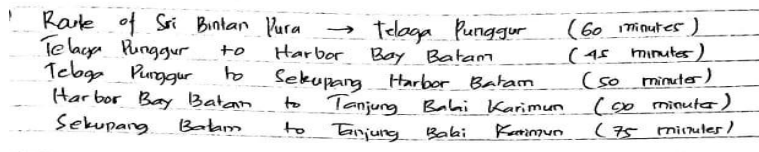 Route of Sri Bintan Pura → Telaga Punggur (60 minutes)
Telaga Punggur to Harbor Bay Batam (45 minutes)
Telaga Punggur to Sekupang Harbor Batam (50 minutes)
Harbor Bay Batam to Tanjung Balai Karimun (90 minutes)
Sekupang Batam to Tanjung Balai Karimun (75 minutes)